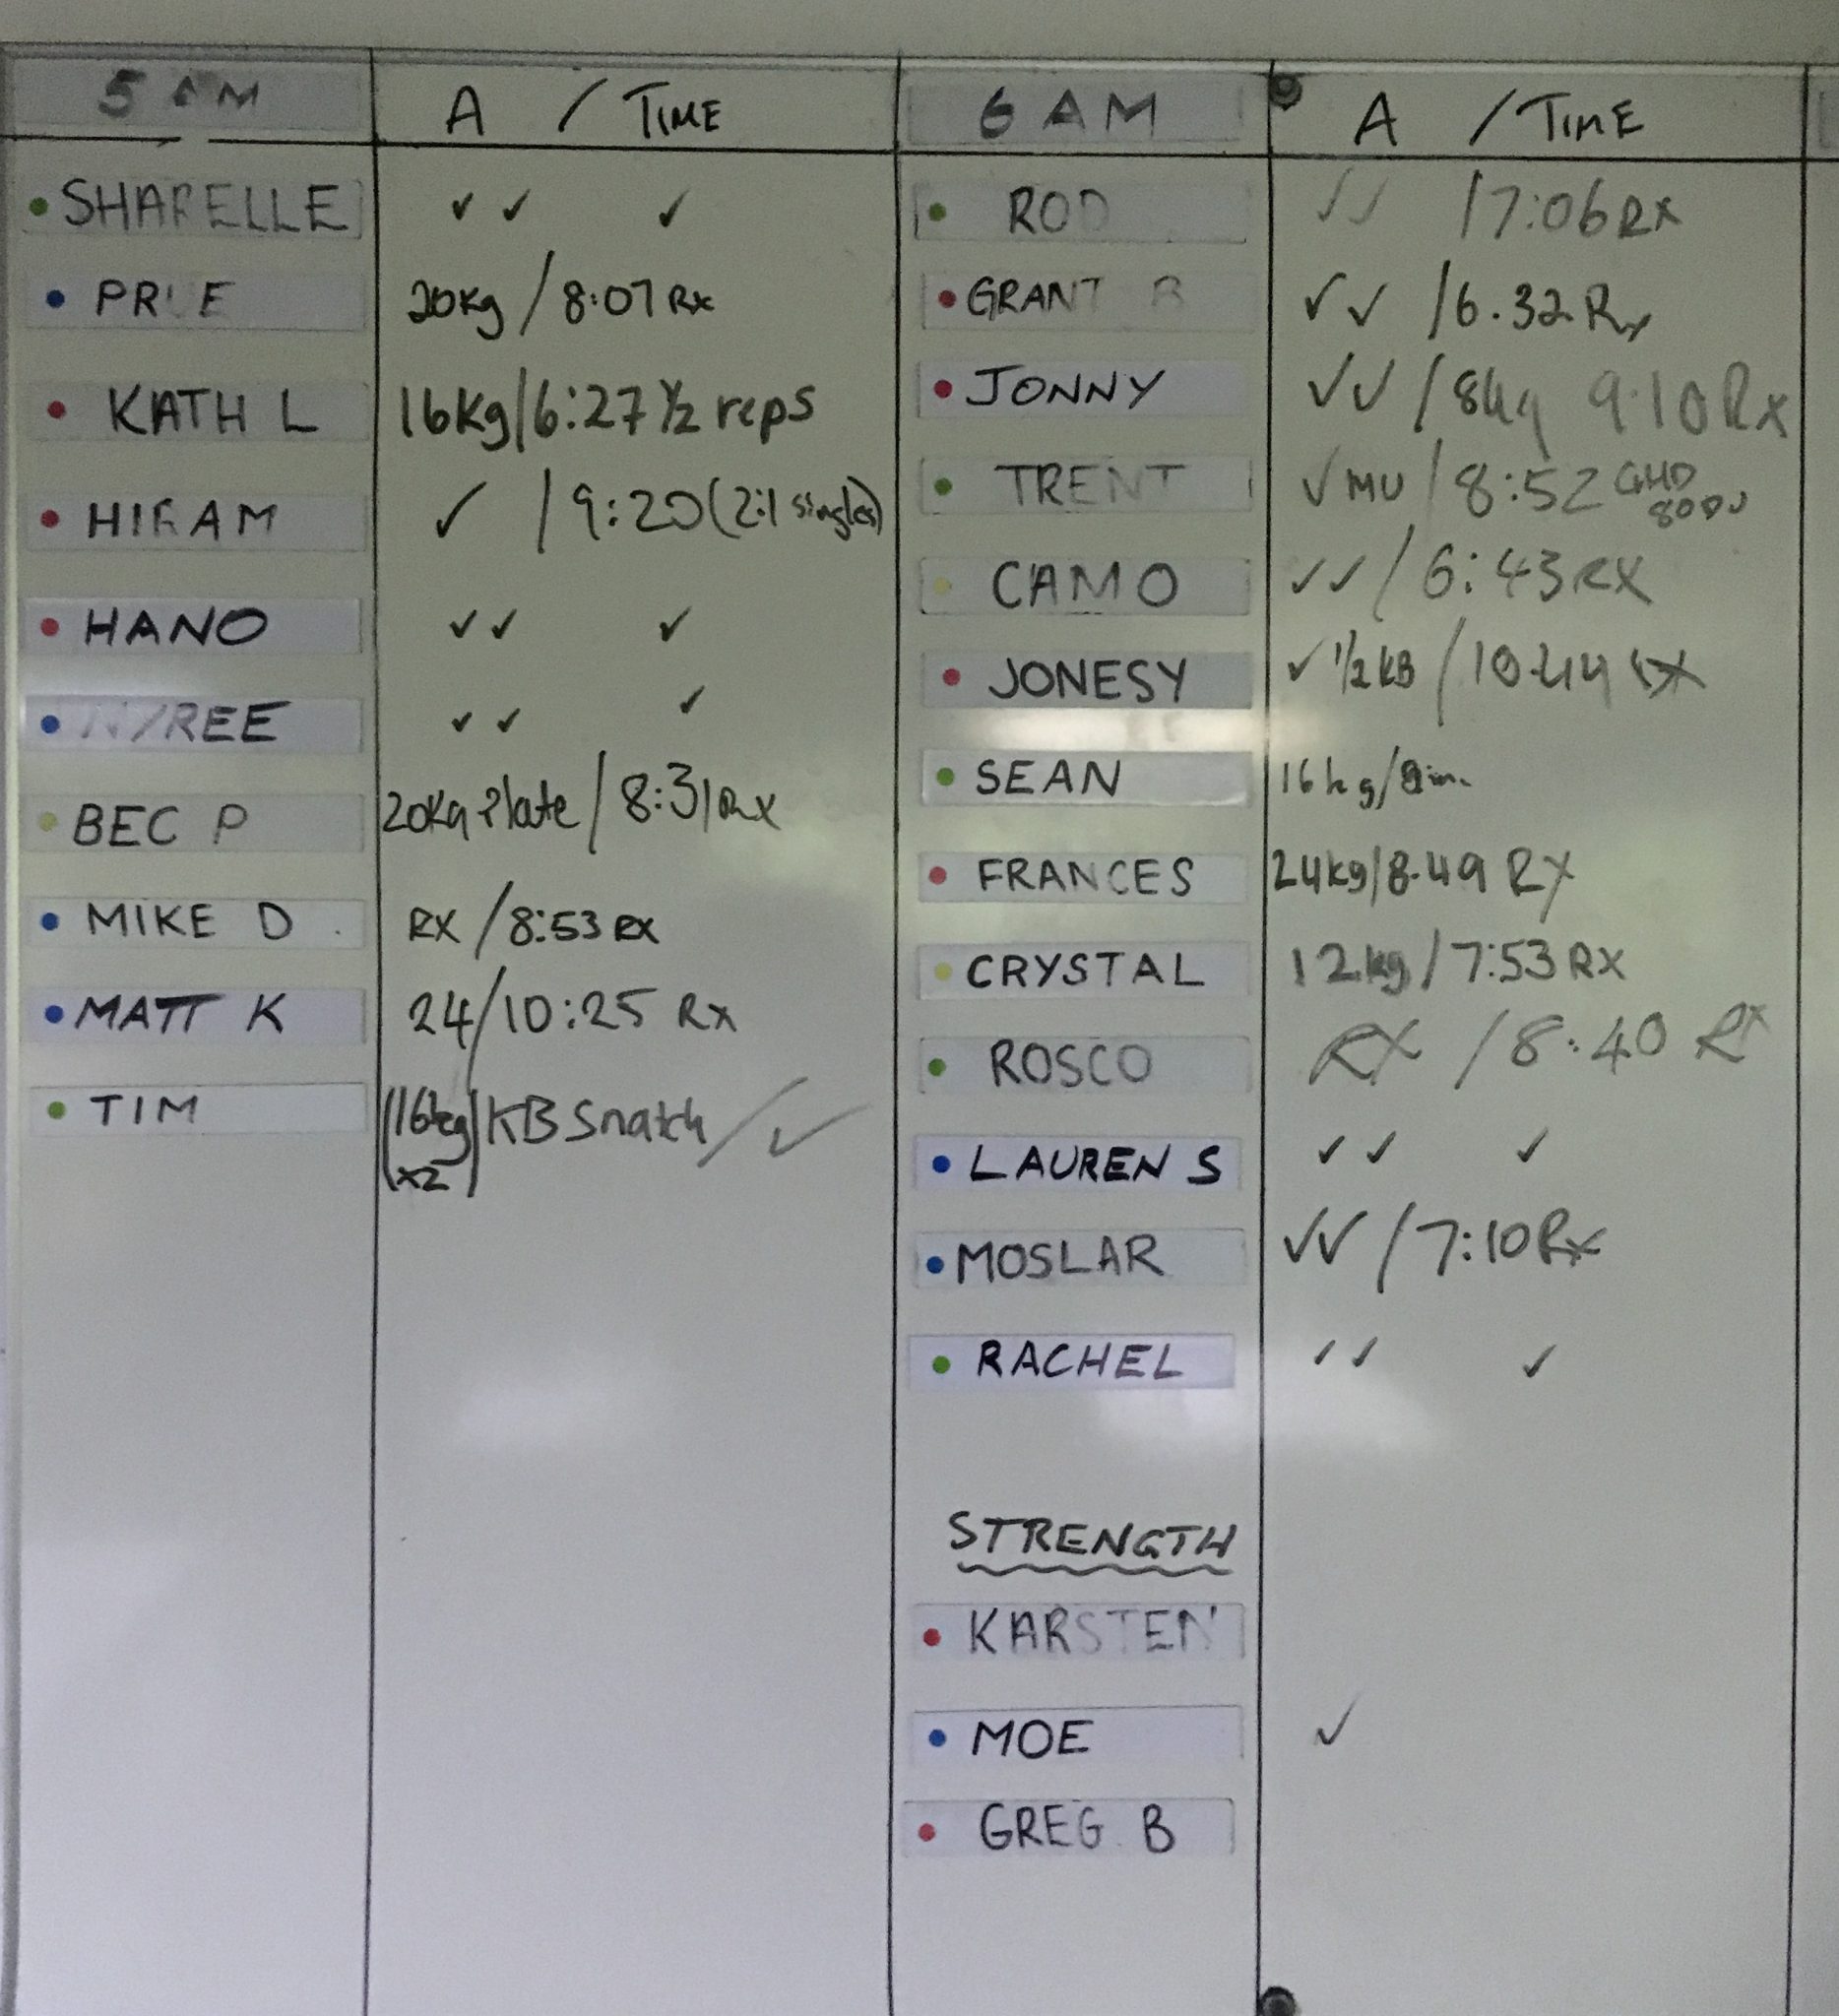 5 AM A / TIME
SHARELLE ✓✓ ✓
PRUE 20kg / 8:07 Rx
KATH L 16kg/6:27 ½ reps
HIRAM ✓ / 9:20 (2:1 singles)
HANO ✓✓ ✓
NYREE ✓✓ ✓
BEC P 20kg Plate / 8:31 Rx
MIKE D RX / 8:53 RX
MATT K 24/10:25 Rx
TIM (16kg x2) KB Snatch / ✓
6 AM A / TIME
ROD ✓✓ / 7:06 RX
GRANT B ✓✓ / 6.32 Rx
JONNY ✓✓ / 84kg 9:10 Rx
TRENT ✓ MU / 8:52 GHD 80DU
CAMO ✓✓ / 6:43 RX
JONESY ✓ ½ KB / 10.44 RX
SEAN 16kg/
FRANCES 24kg/8.49 RX
CRYSTAL 12kg / 7:53 RX
ROSCO RX / 8:40 RX
LAUREN S ✓✓ ✓
MOSLAR ✓✓ / 7:10 Rx
RACHEL ✓✓ ✓
STRENGTH
KARSTEN
MOE ✓
GREG B